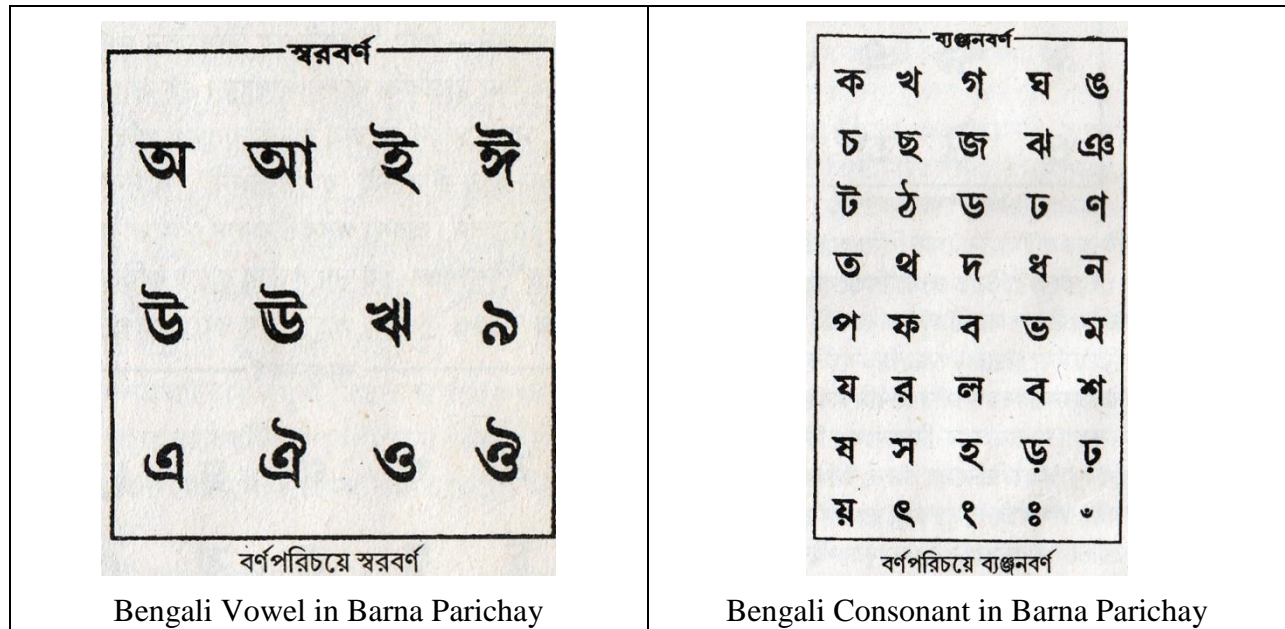 স্বরবর্ণ
অ আ ই ঈ
উ ঊ ঋ ঌ
এ ঐ ও ঔ
বর্ণপরিচয়ে স্বরবর্ণ
Bengali Vowel in Barna Parichay
ব্যঞ্জনবর্ণ
ক খ গ ঘ ঙ
চ ছ জ ঝ ঞ
ট ঠ ড ঢ ণ
ত থ দ ধ ন
প ফ ব ভ ম
য র ল ব শ
ষ স হ ড় ঢ়
য় ৎ ং ঃ ঁ
বর্ণপরিচয়ে ব্যঞ্জনবর্ণ
Bengali Consonant in Barna Parichay